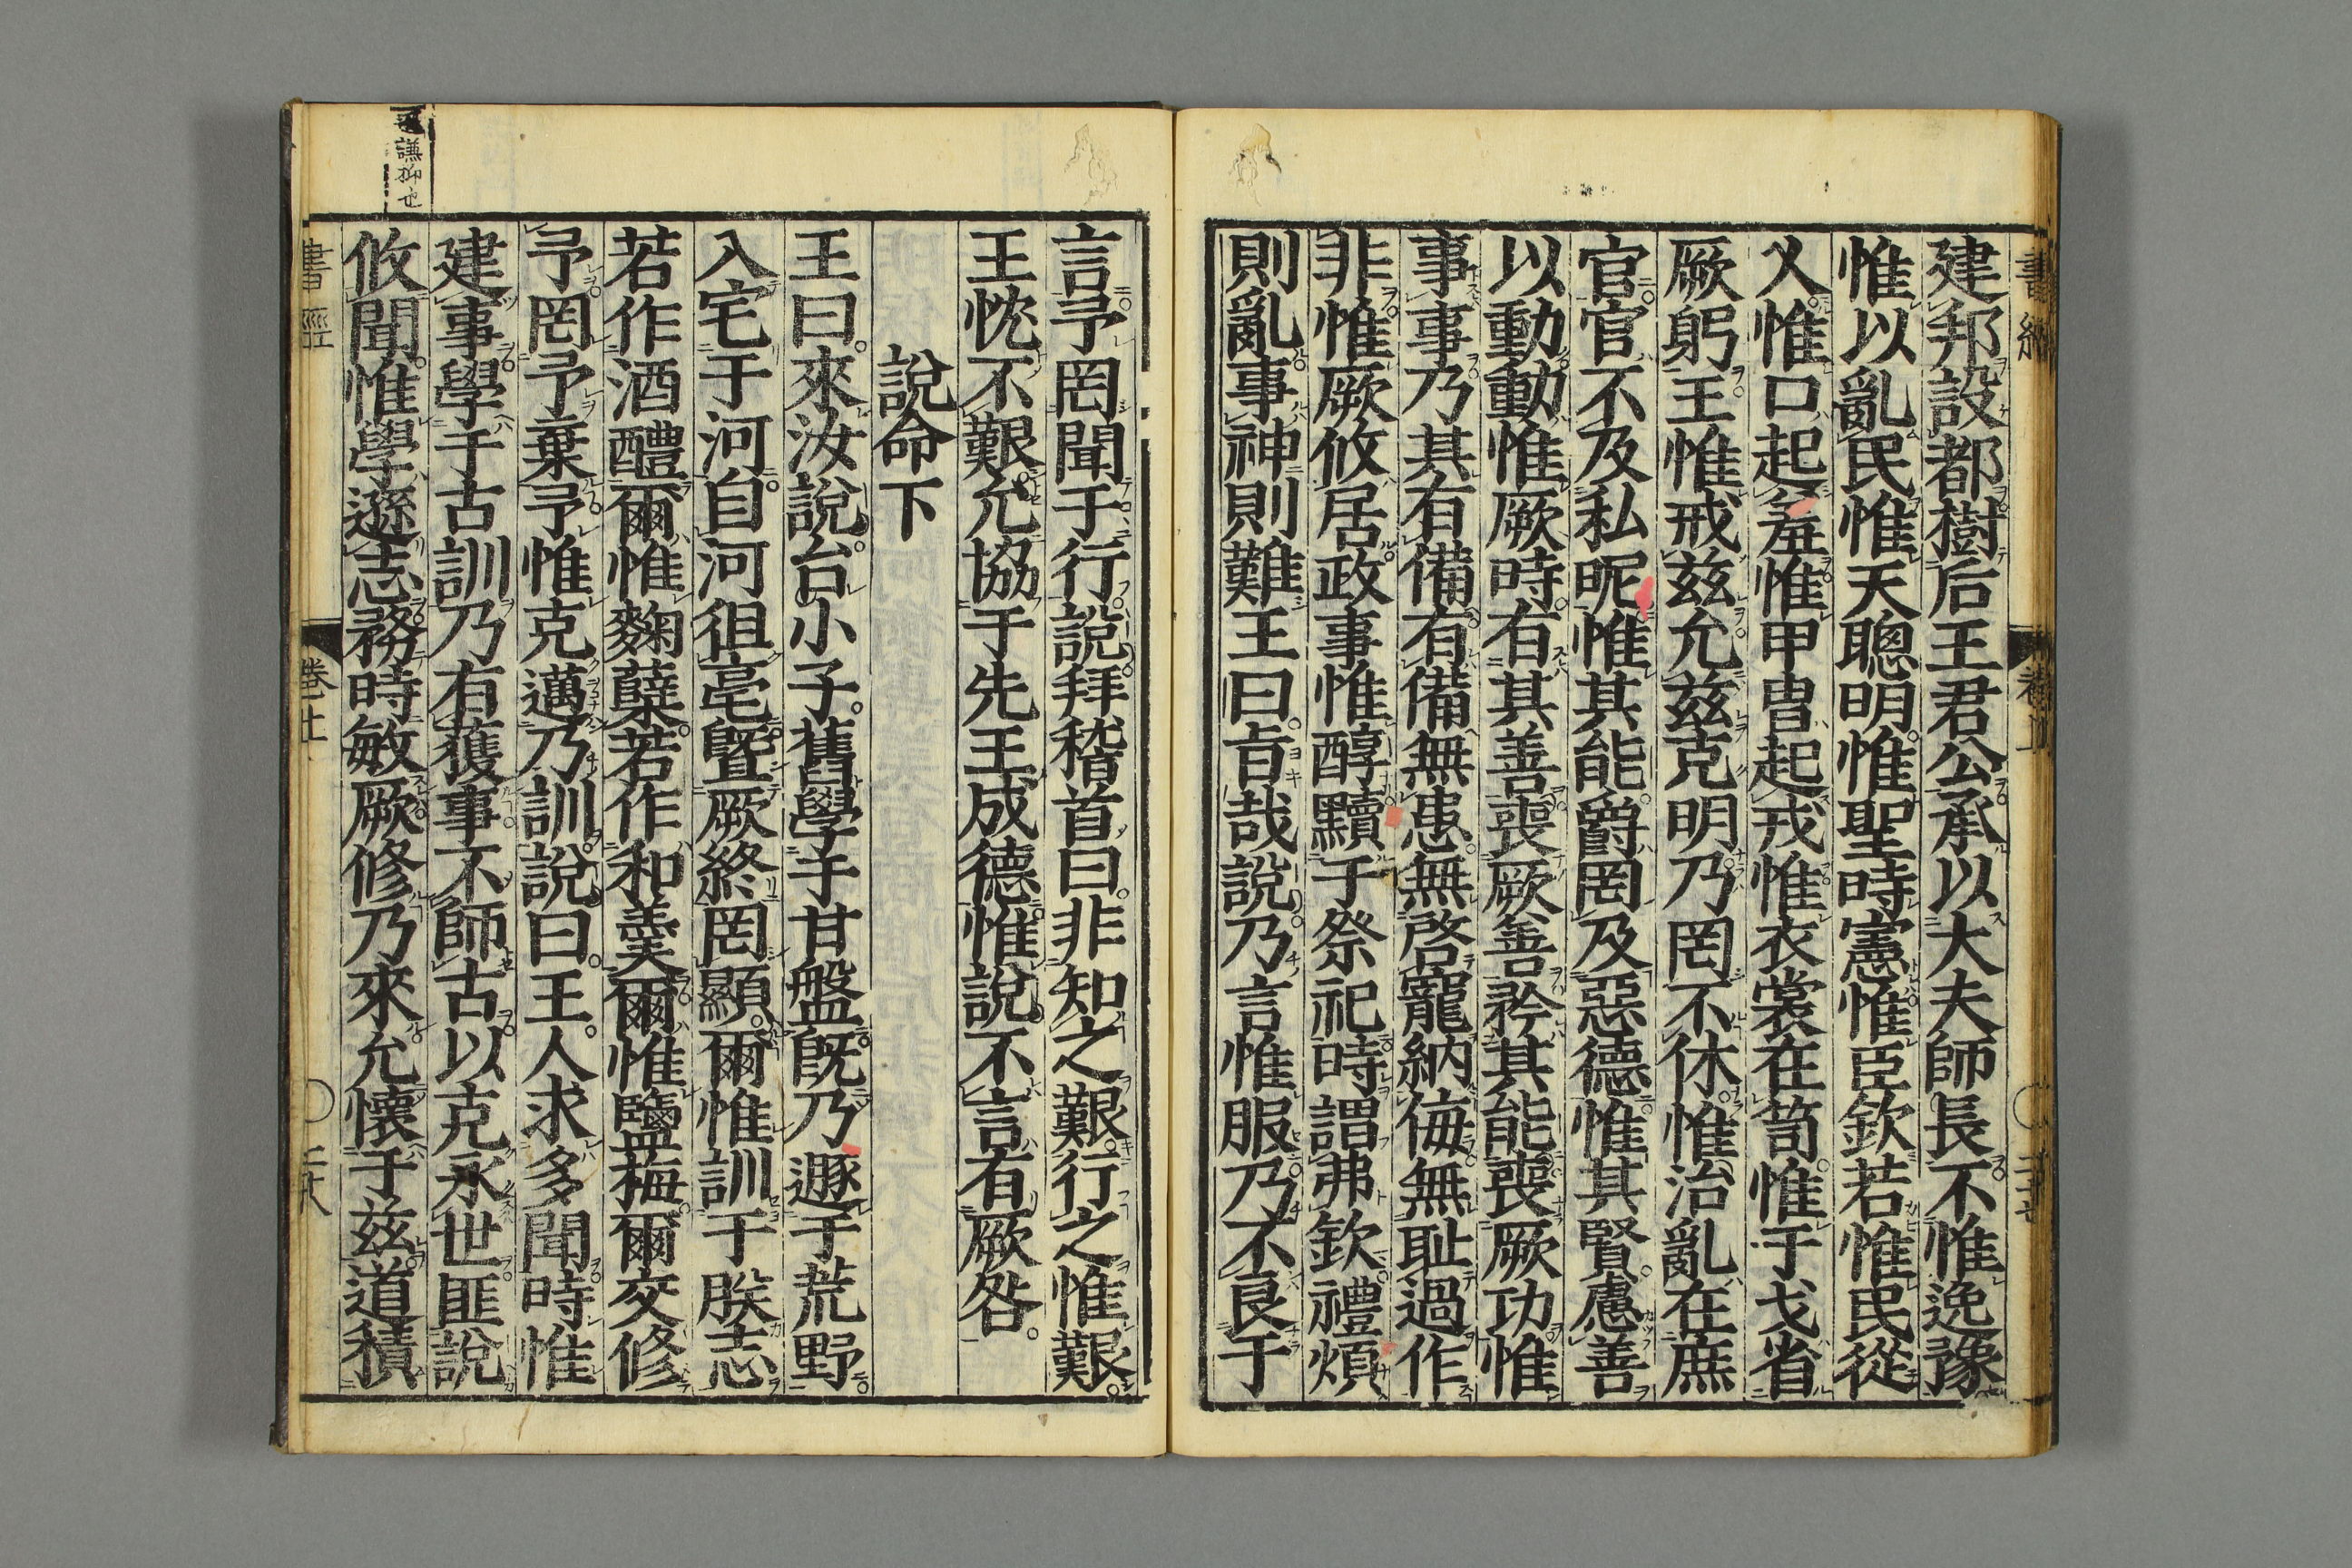 建邦設都樹后王君公承以大夫師長不惟逸豫
惟以亂民惟天聰明惟聖時憲惟臣欽若惟民從
乂惟口起羞惟甲冑起戎惟衣裳在笥惟干戈省
厥躬王惟戒玆允玆克明乃罔不休惟治亂在庶
官官不及私昵惟其能爵罔及惡德惟其賢慮善
以動動惟厥時有其善喪厥善矜其能喪厥功惟
事事乃其有備有備無患無啓寵納侮無耻過作
非惟厥攸居政事惟醇黷于祭祀時謂弗欽禮煩
則亂事神則難王曰旨哉說乃言惟服乃不良于
言予罔聞于行說拜稽首曰非知之艱行之惟艱
王忱不艱允協于先王成德惟說不言有厥咎
說命下
王曰來汝說台小子舊學于甘盤旣乃遯于荒野
入宅于河自河徂亳曁厥終罔顯爾惟訓于朕志
若作酒醴爾惟麴糵若作和羹爾惟鹽梅爾交修
予罔予棄予惟克邁乃訓說曰王人求多聞時惟
建事學于古訓乃有獲事不師古以克永世匪說
攸聞惟學遜志務時敏厥修乃來允懷于玆道積
謙抑也
書經
卷上